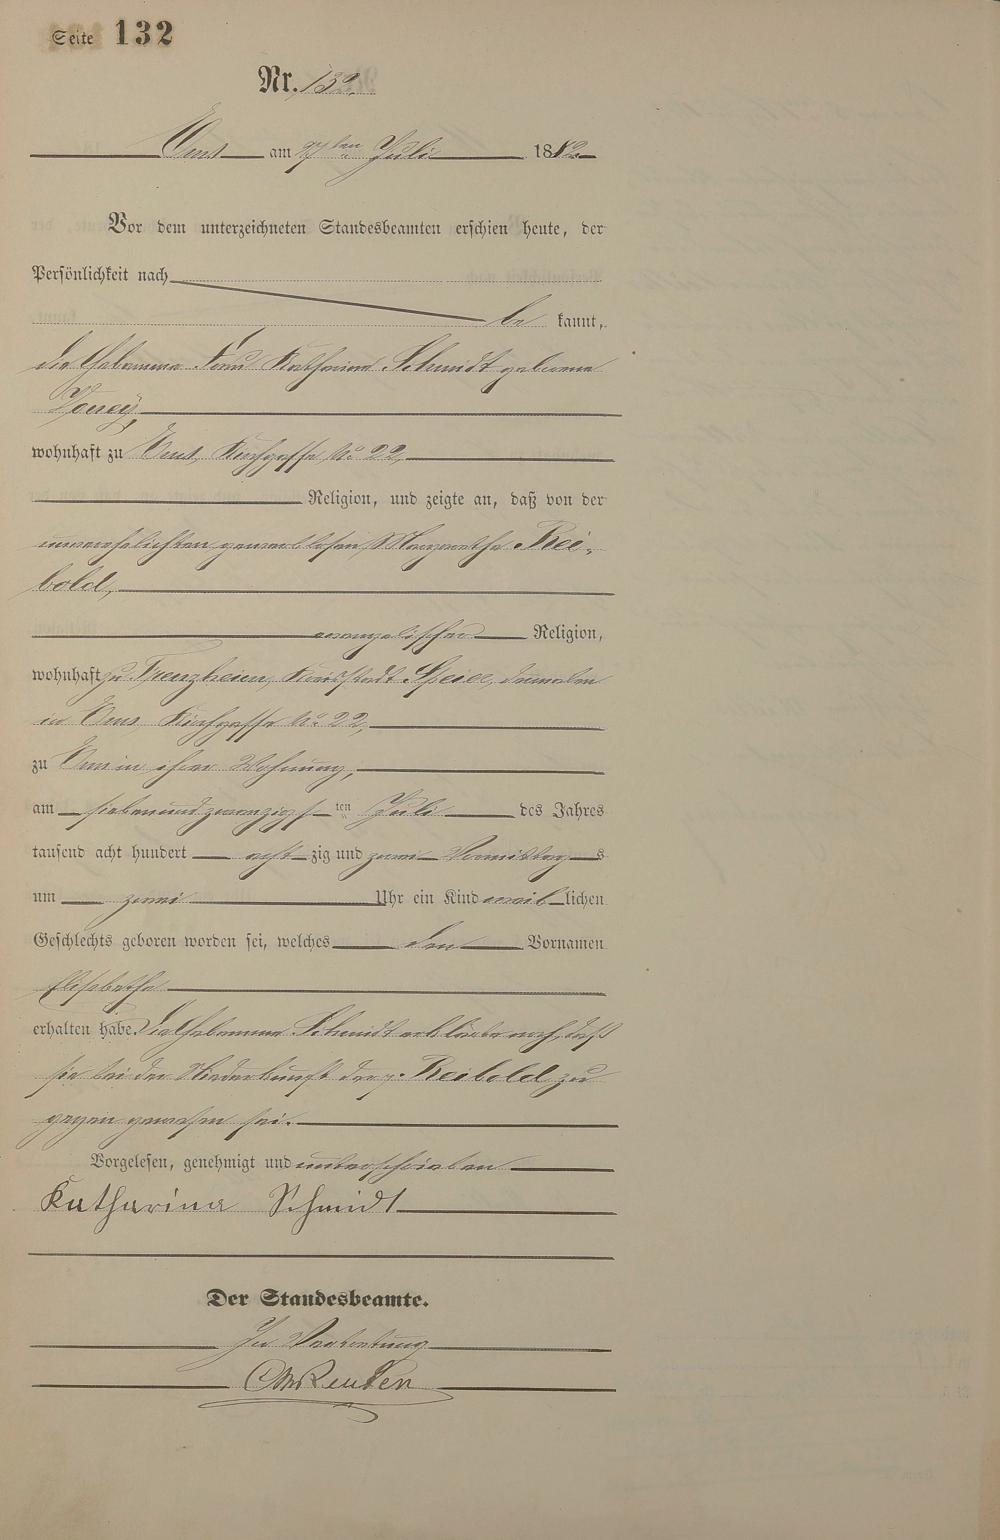 Seite 132
Nr. 132.
Ems am 27ten Juli 1882
Vor dem unterzeichneten Standesbeamten erschien heute, der
Persönlichkeit nach
be kannt,
die Hebamme Frau Katharina Schmidt geborene
wohnhaft zu Ems, Kirchgasse No 22,
Religion, und zeigte an, daß von der
unverehelichten gewerblosen Margarethe Rei-
bold,
evangelischer Religion,
wohnhaft zu Speier, dermalen
in Ems, Kirchgasse No 22,
zu Ems in ihrer Wohnung,
am siebenundzwanzigsten Juli des Jahres
tausend acht hundert achtzig und zwei Vormittags
um zwei Uhr ein Kind weiblichen
Geschlechts geboren worden sei, welches den Vornamen
Elisabetha
erhalten habe. Die Hebamme Schmidt erklärte noch, daß
sie bei der Niederkunft der p. Reibold zu
gegen gewesen sei.
Vorgelesen, genehmigt und unterschrieben
Katharina Schmidt
Der Standesbeamte.
In Vertretung